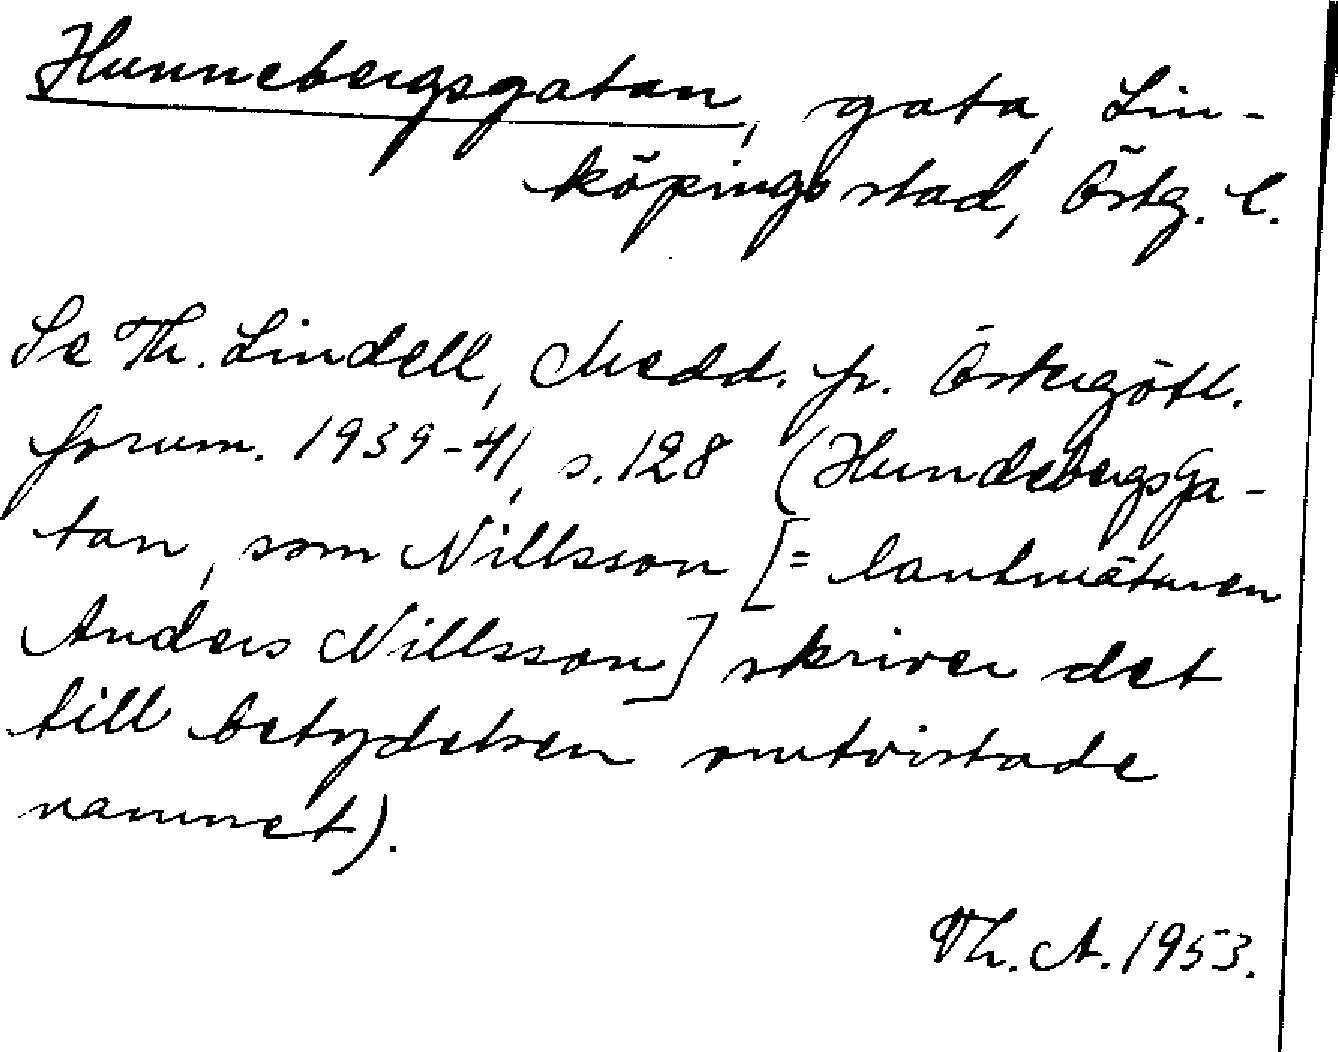 Hunnebergsgatan, gata, Lin-
köpings stad, Östg. l.
Se Th. Lindell, Medd. fr. Östergötl.
fornm. 1939-41, s. 128 (Hundebergsga-
tan, som Nillsson [= lantmätaren
Anders Nillsson] skriver det
till betydelsen omtvistade
namnet).
Th. A. 1953.